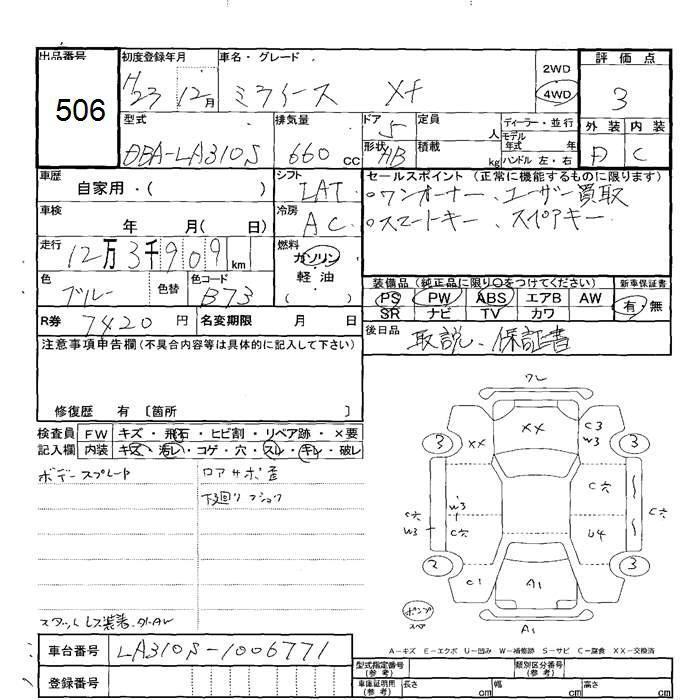 出品番号 初度登録年月 車名・グレード 評価点
506 H23 12月 ミライース Xf 2WD 4WD 3
型式 排気量 ドア 定員 ディーラー・並行 外装 内装
DBA-LA310S 660 CC 5 人 モデル年式 年 D C
形状 HB 積載 kg ハンドル 左・右
車歴 シフト セールスポイント (正常に機能するものに限ります)
自家用・( ) LAT ○ワンオーナー、ユーザー買取
車検 冷房 ○スマートキー、スペアキー
年 月( 日) AC
走行 燃料
12万3千909km ガソリン
色 色替 色コード 軽油
ブルー B73 ( )
装備品 (純正品に限り○をつけてください) 新車保証書
PS PW ABS エアB AW 有・無
SR ナビ TV カワ
R券 7420円 名変期限 月 日 後日品 取説、保証書
注意事項申告欄 (不具合内容等は具体的に記入して下さい)
修復歴 有 〔箇所 〕
検査員 FW キズ・飛石・ヒビ割・リペア跡・×要
記入欄 内装 キズ・汚レ・コゲ・穴・スレ・キレ・破レ
ボデースプレード
下回り
ワレ
XX XX C3
W3
3 3
C穴 W3 C穴 C穴
W3 C穴 U4
2 3
C1 A1
ポンプ
スペ
A1
A-キズ E-エクボ U-凹み W-補修跡 S-サビ C-腐食 XX-交換済
車台番号 LA310S-1006771
登録番号
型式指定番号(参考) 類別区分番号(参考)
車庫証明用(参考) 長さ cm 幅 cm 高さ cm